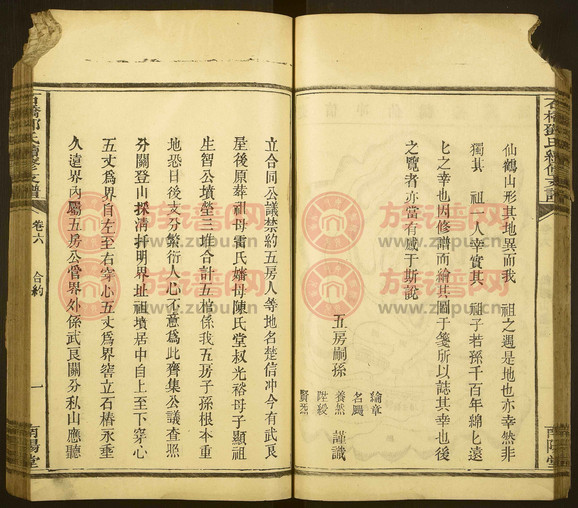 石橋鄧氏續修支譜
南陽堂
仙鶴山形其地異而我 祖之遇是地也亦幸然非
獨其 祖一人幸實其 祖子若孫千百年綿匕遠
匕之幸也因修譜而繪其圖于箋所以誌其幸也後
之覽者亦當有感于斯說
五房嗣孫
綸章
名颺
養然
陞綬
賢烝
謹識
立合同公議禁約五房人等地名楚信冲今有武良
屋後原葬祖母雷氏嬸母陳氏堂叔光裕母子顯祖
生智公墳塋三堆合計五棺係我五房子孫根本重
地恐日後支分繁衍人心不意爲此齊集公議查照
分關登山採淸抃明界址祖墳居中自上至下穿心
五丈爲界自左至右穿心五丈爲界窖立石樁永垂
久遠界內屬五房公管界外係武良關分私山應聽
石橋鄧氏續修支譜
卷六
合約
一
南陽堂
族谱网
www.zupu.cn